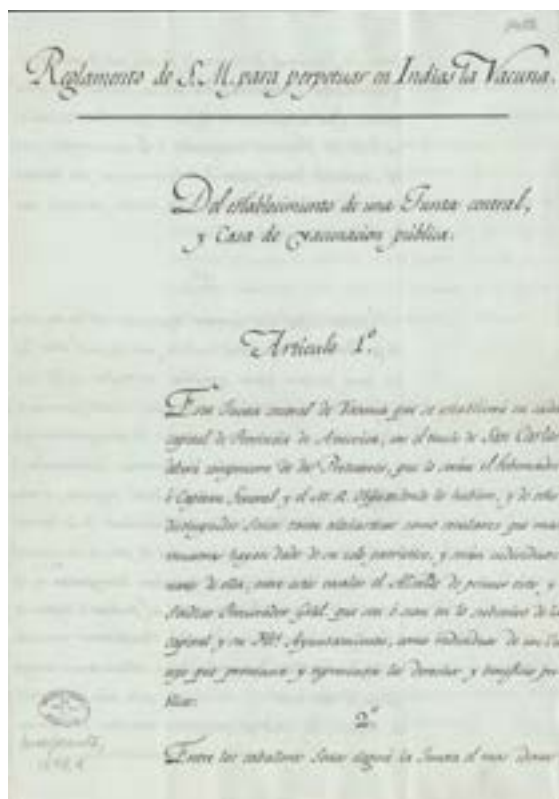 Reglamento de S. M. para perpetuar en Indias la Vacuna.
Del establecimiento de una Junta central,
y Casa de vacunacion pública.
Articulo 1.º
Esta Junta central de Vacuna que se establecerá en cada
capital de Provincia de America, con el titulo de San Carlos
deberá componerse de dos Presidentes, que lo serán el Gobernador
ó Capitan General y el M. R. Obispo donde lo hubiere, y de ocho
distinguidos Socios tanto eclesiasticos como seculares que mas
muestras hayan dado de su celo patriotico, y serán individuos
natos de ella, entre estos vocales el Alcalde de primer voto y
Sindico Procurador Gral. que son ó sean en lo sucesivo de la
capital y su Ayuntamiento, como individuos de un
que promueve y representa los derechos y beneficios pu
blicos.
2.º
Entre los caballeros Socios elegirá la Junta el mas